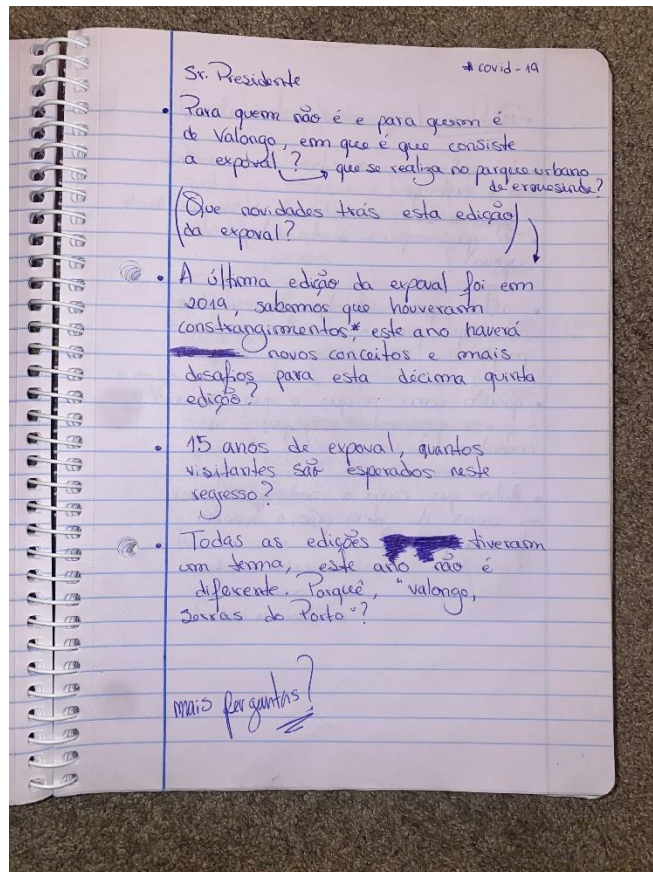 * covid-19
Sr. Presidente
• Para quem não é e para quem é
de Valongo, em que é que consiste
a expoval ? → que se realiza no parque urbano
de ermesinde?
(Que novidades trás esta edição
da expoval?)
• A última edição da expoval foi em
2019, sabemos que houveram
constrangimentos,* este ano haverá
novos conceitos e mais
desafios para esta décima quinta
edição?
• 15 anos de expoval, quantos
visitantes são esperados neste
regresso?
• Todas as edições tiveram
um tema, este ano não é
diferente. Porquê, "valongo,
serras do Porto"?
mais perguntas?